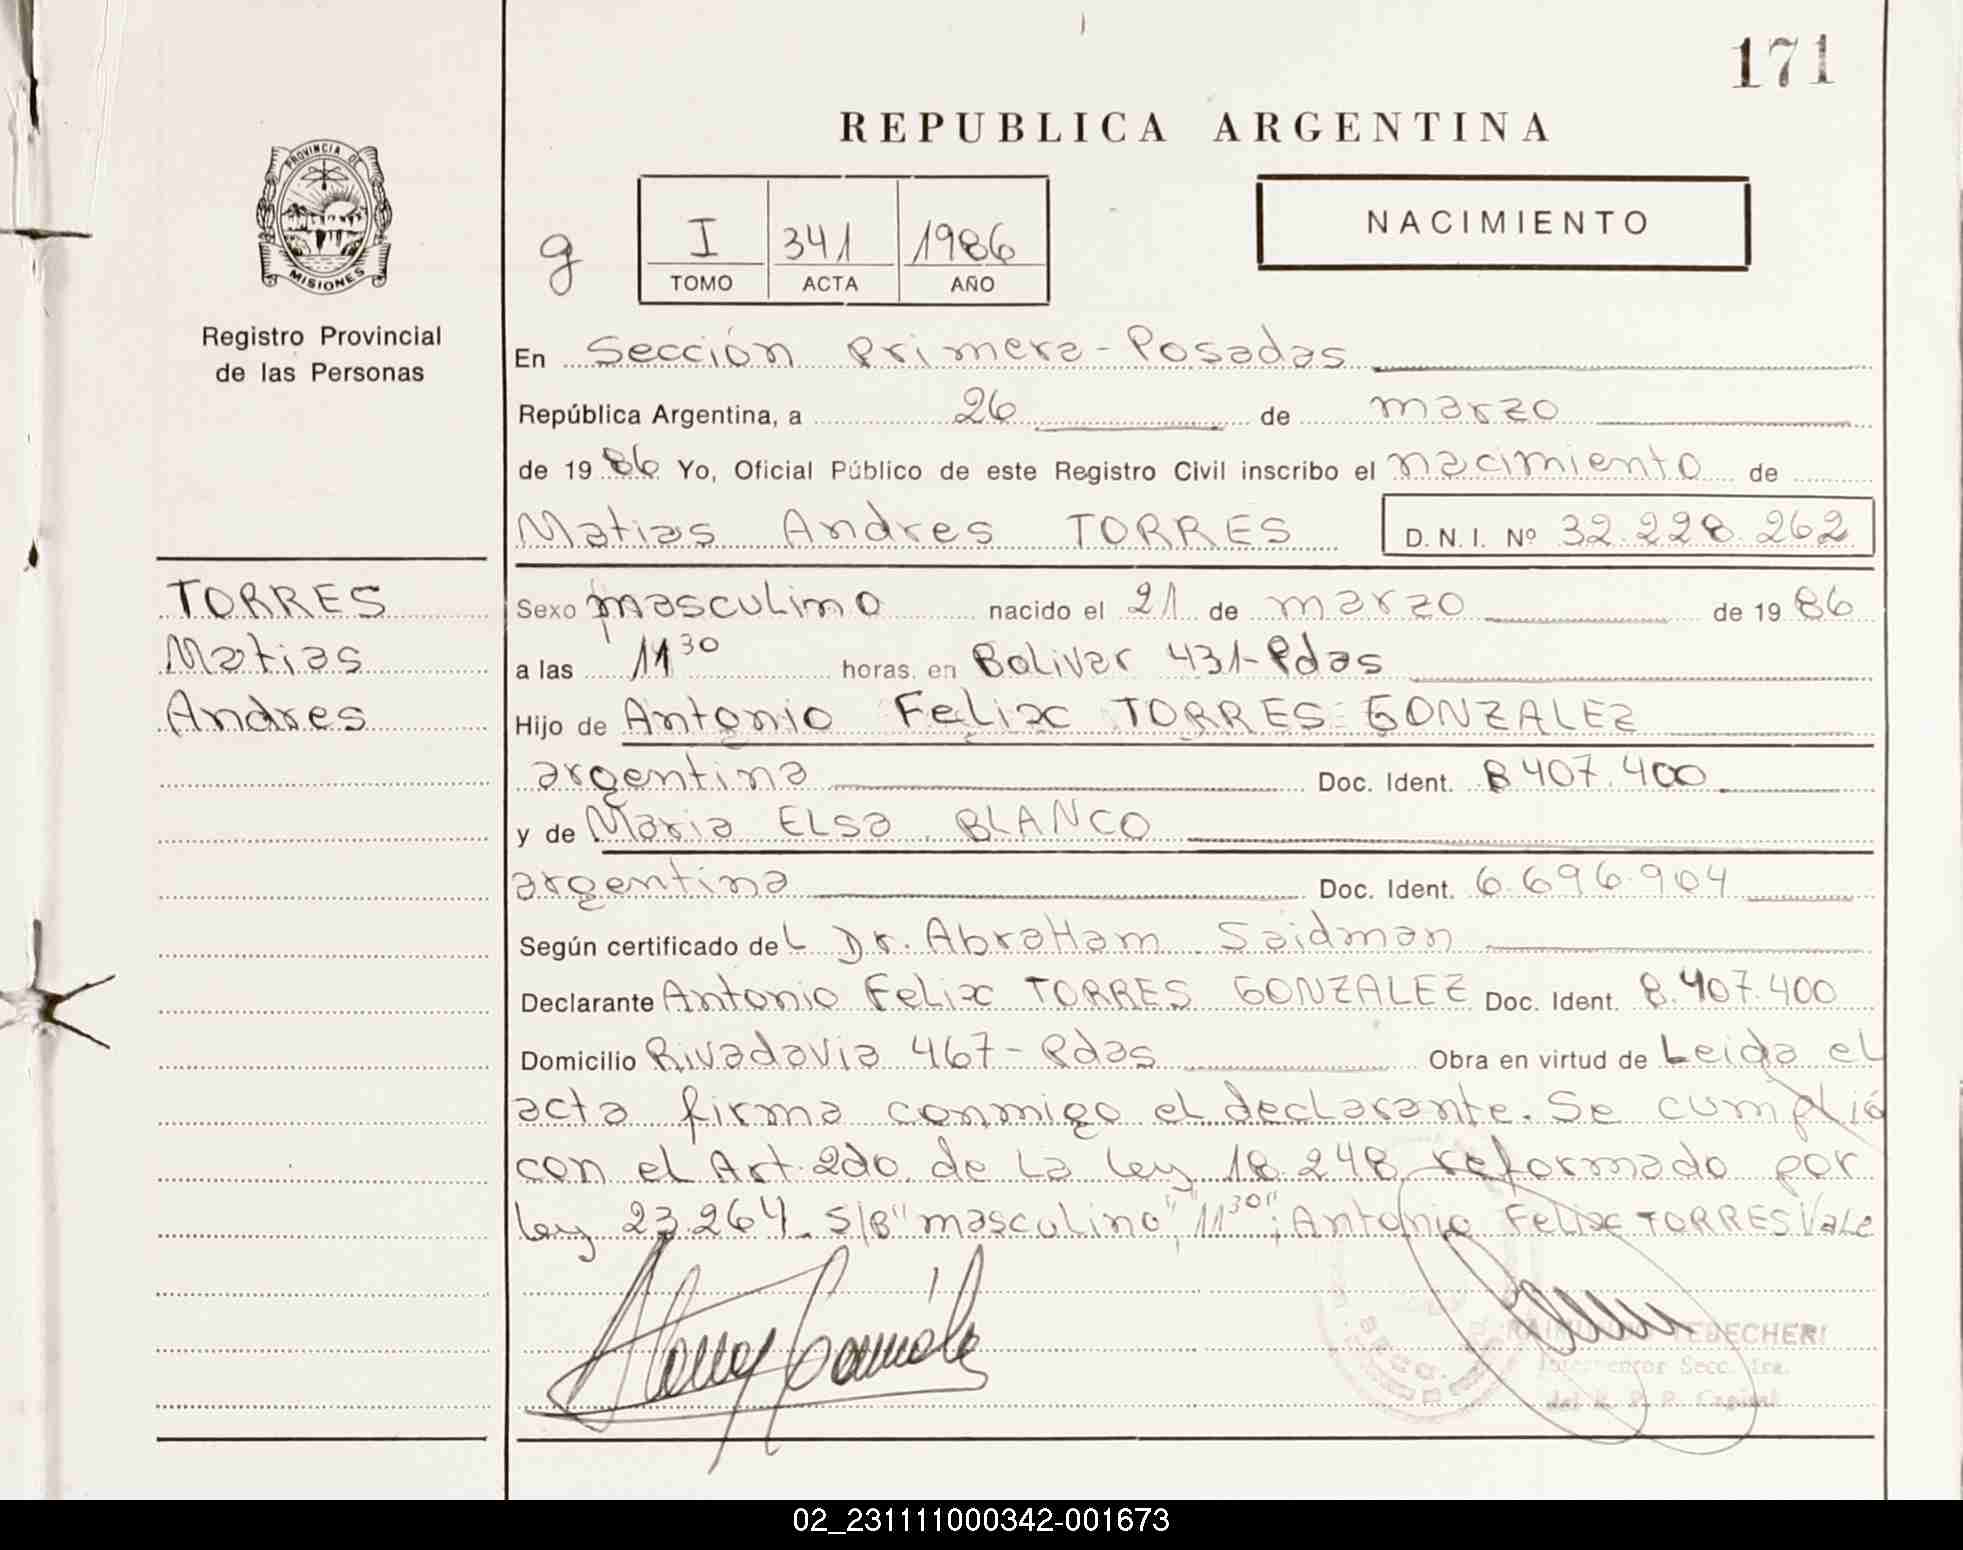 171
REPUBLICA ARGENTINA
PROVINCIA DE
MISIONES
Registro Provincial
de las Personas
g
I 341 1986
TOMO ACTA AÑO
NACIMIENTO
En Sección Primera - Posadas
República Argentina, a 26 de marzo
de 1986 Yo, Oficial Público de este Registro Civil inscribo el nacimiento de
Matias Andres TORRES D.N.I. Nº 32.228.262
TORRES
Matias
Andres
Sexo masculino nacido el 21 de marzo de 1986
a las 11 30 horas. en Bolivar 431-Pdas
Hijo de Antonio Felix TORRES GONZALEZ
argentina Doc. Ident. 8.407.400
y de Maria ELsa BLANCO
argentina Doc. Ident. 6.696.904
Según certificado del Dr. AbraHam Saidman
Declarante Antonio Felix TORRES GONZALEZ Doc. Ident. 8.407.400
Domicilio Rivadavia 467- Pdas Obra en virtud de Leida el
acta firma conmigo el declarante. Se cumplió
con el Art. 2do. de La Ley 18.248 reformado por
Ley 23.264. S/B "masculino", "11 30"; Antonio Felix TORRES VaLe
TEDECHERI
Interventor Secc. 1ra.
del R. P. P. Capital
02_231111000342-001673